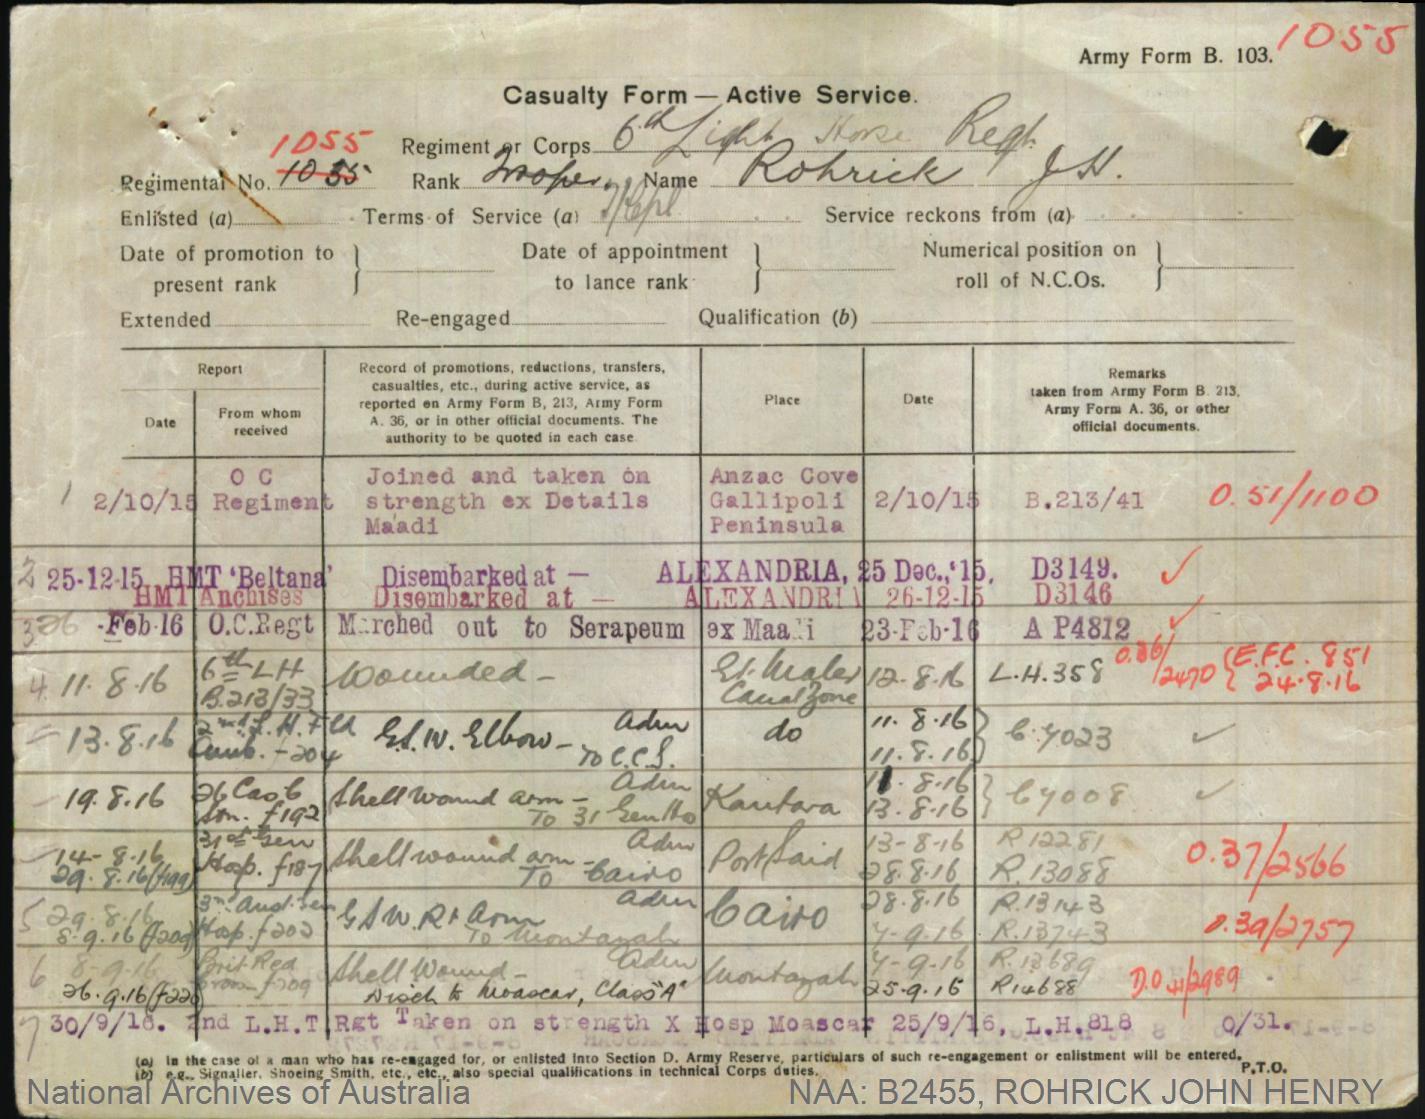 1055
Army Form B. 103.
Casualty Form — Active Service.
1055
Regiment or Corps 6th Light Horse Regt.
Regimental No. 1035 Rank Trooper. Name Rohrick J H.
Enlisted (a) Terms of Service (a) Service reckons from (a)
Date of promotion to present rank } Date of appointment to lance rank } Numerical position on roll of N.C.Os. }
Extended Re-engaged Qualification (b)
Report
Date
From whom received
Record of promotions, reductions, transfers, casualties, etc., during active service, as reported on Army Form B, 213, Army Form A. 36, or in other official documents. The authority to be quoted in each case
Place
Date
Remarks
taken from Army Form B. 213, Army Form A. 36, or other official documents.
1 2/10/15 O C Regiment Joined and taken on strength ex Details Maadi Anzac Cove Gallipoli Peninsula 2/10/15 B.213/41 0.51/1100
2 25-12-15 HMT 'Beltana' Disembarked at — ALEXANDRIA, 25 Dec.,'15. D3149.
HMT Anchises Disembarked at — ALEXANDRIA 26-12-15 D3146
3 26 -Feb-16 O.C.Regt Marched out to Serapeum ex Maadi 23-Feb-16 A P4812
4 11.8.16 6th L H B.213/33 Wounded - Et. Maler Canal Zone 12.8.16 L.H.358 0.36/2470 { E.F.C. 851 24.8.16
13.8.16 2nd L.H. Fld Amb. - 204 G.S.W. Elbow - Adm To C.C.S. do 11.8.16 11.8.16 } C.4023
19.8.16 26 Cas C Stn. f192 Shell wound arm - Adm To 31 Gen Ho Kantara 11.8.16 13.8.16 } C4008
14-8.16 29.8.16 (f199) 31st Gen Hosp. f187 Shell wound arm - Adm To Cairo Port Said 13-8-16 28.8.16 R 12281 R.13088 0.37/2566
5 29.8.16 8.9.16 (f209) 3rd Aust Gen Hosp. f202 G S W. Rt Arm Adm To Montazah Cairo 28.8.16 7-9.16 R.13143 R.13743 0.39/2757
6 8-9.16 26.9.16 (f220) Brit Red Cross f209 Shell Wound - Adm Disch to Moascar, Class "A" Montazah 7-9.16 25.9.16 R.13689 R14688 D.O 41/2989
7 30/9/16. 2nd L.H.T.Rgt Taken on strength X Hosp Moascar 25/9/16, L.H.818 0/31.
(a) In the case of a man who has re-engaged for, or enlisted into Section D. Army Reserve, particulars of such re-engagement or enlistment will be entered.
(b) e.g., Signaller, Shoeing Smith, etc., etc., also special qualifications in technical Corps duties.
P.T.O.
National Archives of Australia
NAA: B2455, ROHRICK JOHN HENRY